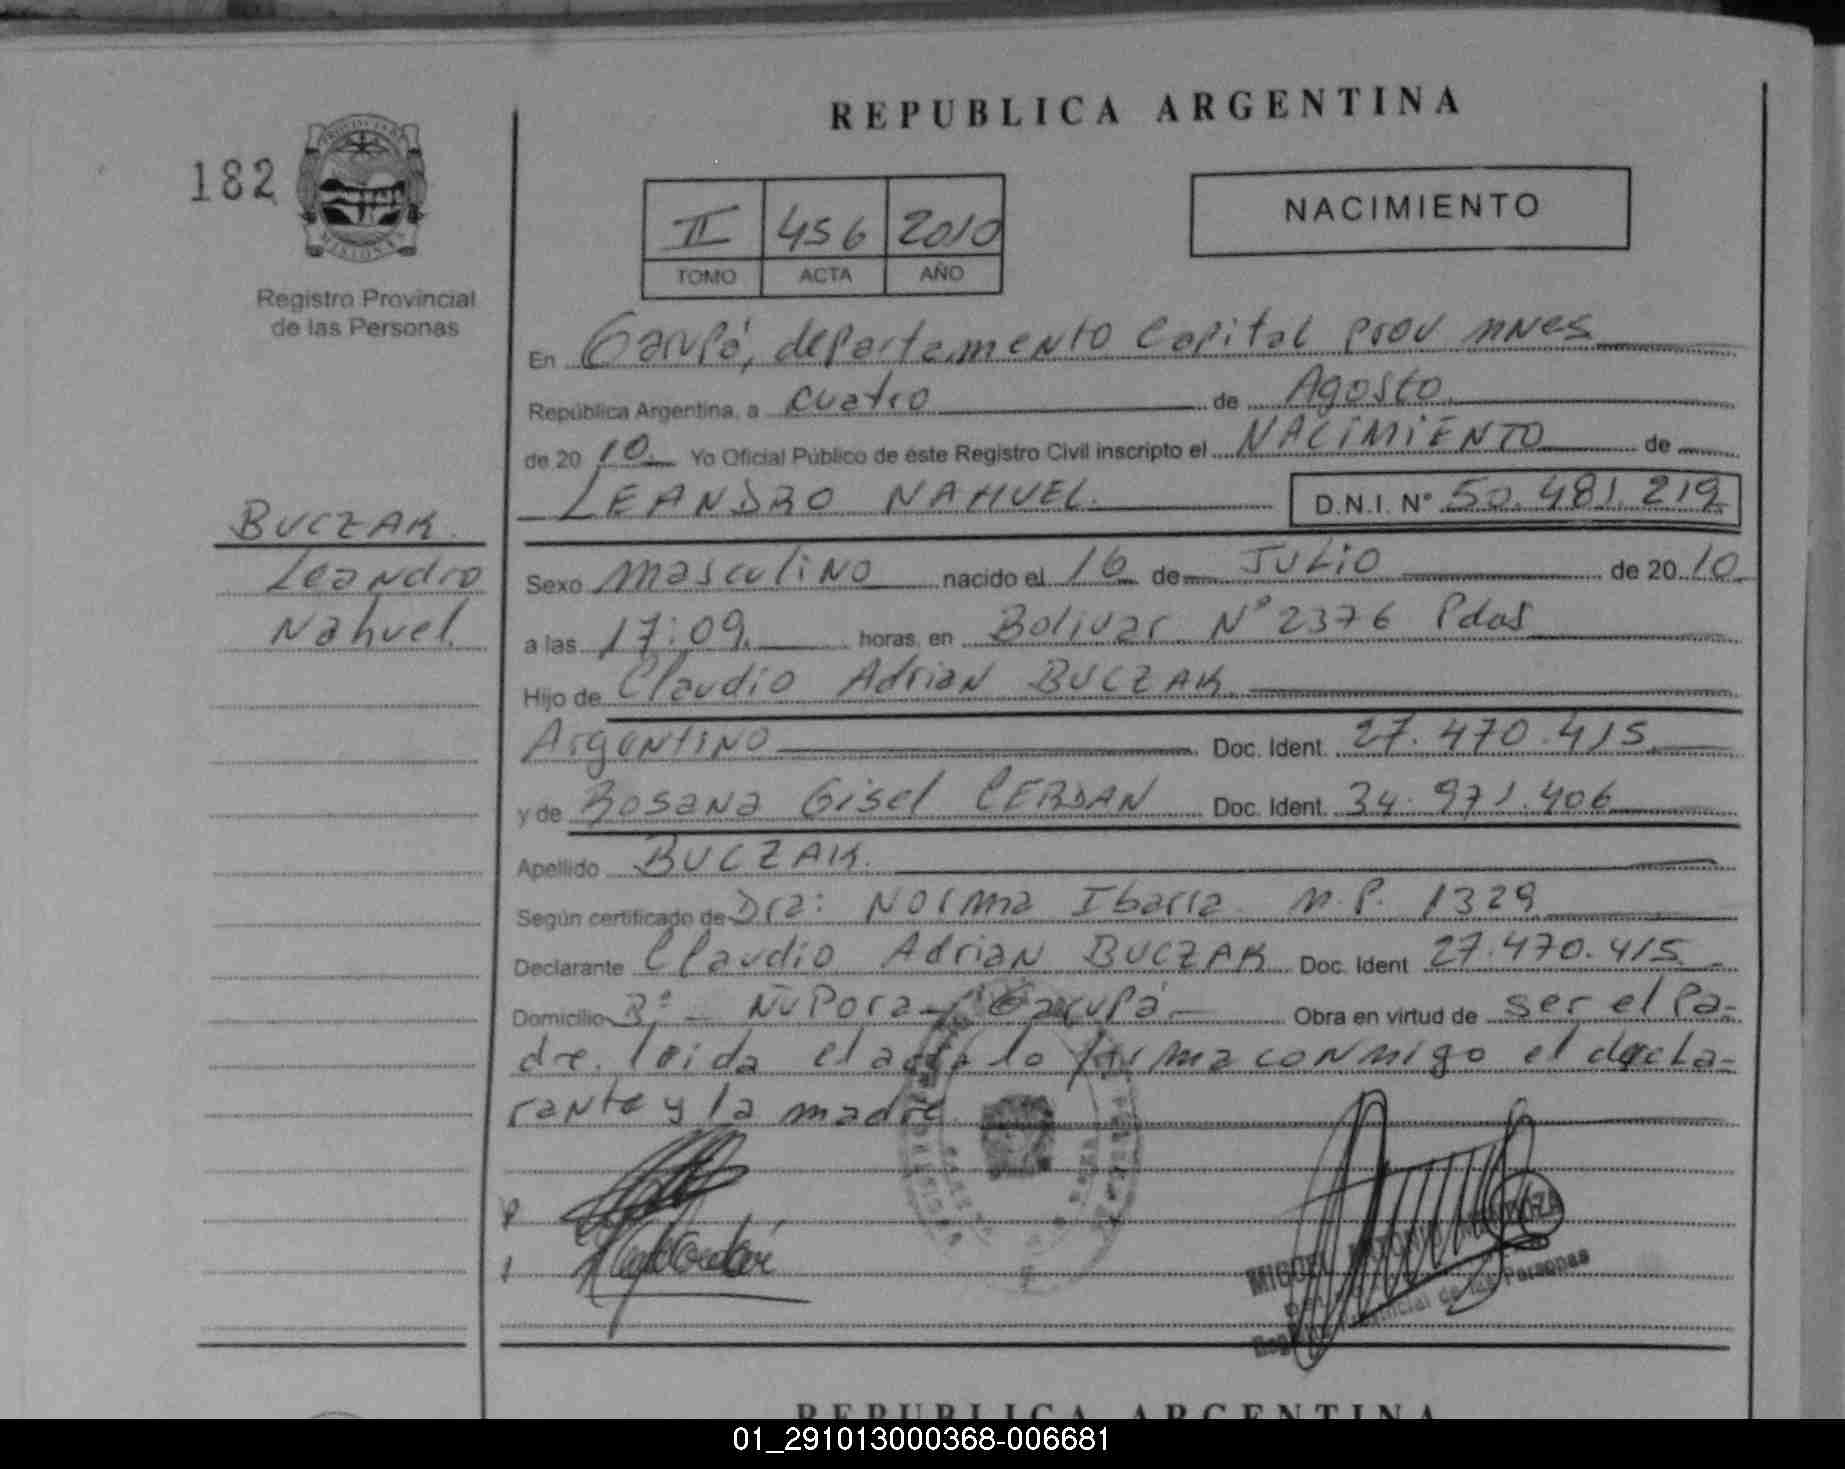 REPUBLICA ARGENTINA
182
PROVINCIA DE
MISIONES
Registro Provincial
de las Personas
II 456 2010
TOMO ACTA AÑO
NACIMIENTO
En Garupá, departamento Capital prov mnes
República Argentina, a cuatro de Agosto
de 20 10. Yo Oficial Público de éste Registro Civil inscripto el NACIMIENTO de
LEANDRO NAHUEL. D.N.I. N° 50.481.219
BUCZAK.
Leandro
Nahuel.
Sexo masculino nacido el 16 de JULIO de 20 10
a las 17:09. horas, en Bolivar N° 2376 Pdas
Hijo de Claudio Adrian BUCZAK
Argentino Doc. Ident. 27.470.415
y de Rosana Gisel CERDAN Doc. Ident. 34.971.406
Apellido BUCZAK.
Según certificado de Dra: Norma Ibarra M.P. 1329
Declarante Claudio Adrian BUCZAK Doc. Ident 27.470.415
Domicilio Bº - Ñu Pora - Garupá - Obra en virtud de ser el pa-
dre. leida el acta lo firma conmigo el decla-
rante y la madre.
MIGUEL ANTONIO MENDOZA
Registro Provincial de las Personas
REPUBLICA ARGENTINA
01_291013000368-006681